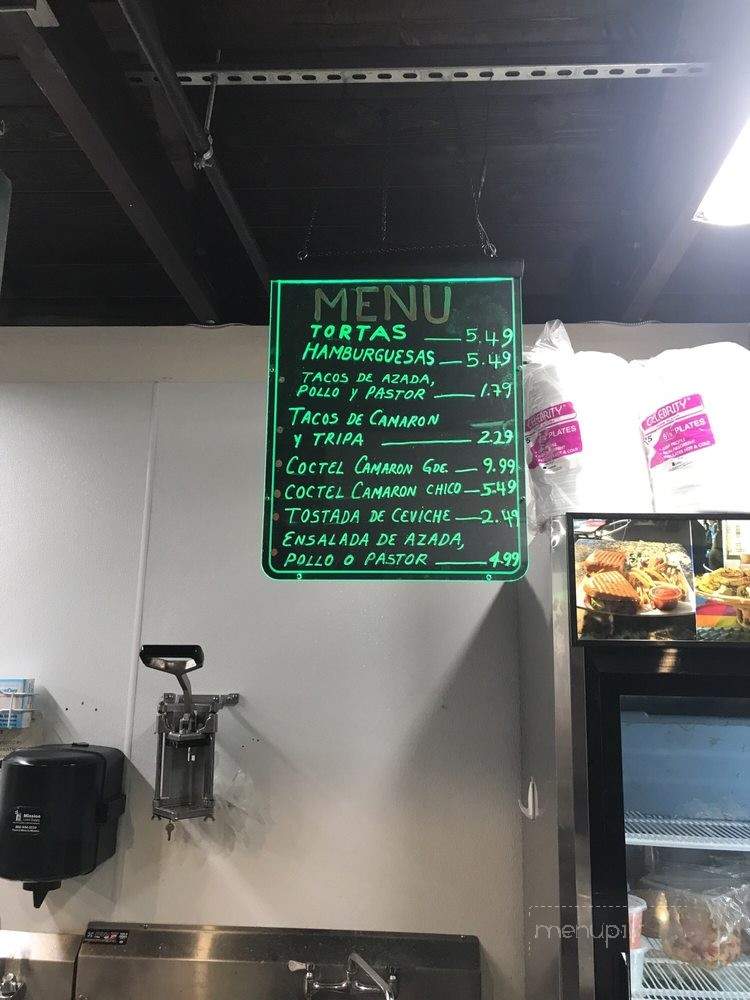 MENU
TORTAS 5.49
HAMBURGUESAS 5.49
TACOS DE AZADA,
POLLO Y PASTOR 1.79
TACOS DE CAMARON
Y TRIPA 2.29
COCTEL CAMARON GDE. 9.99
COCTEL CAMARON CHICO 5.49
TOSTADA DE CEVICHE 2.49
ENSALADA DE AZADA,
POLLO O PASTOR 4.99
CELEBRITY
PLATES
CELEBRITY
PLATES
Mission
menupi